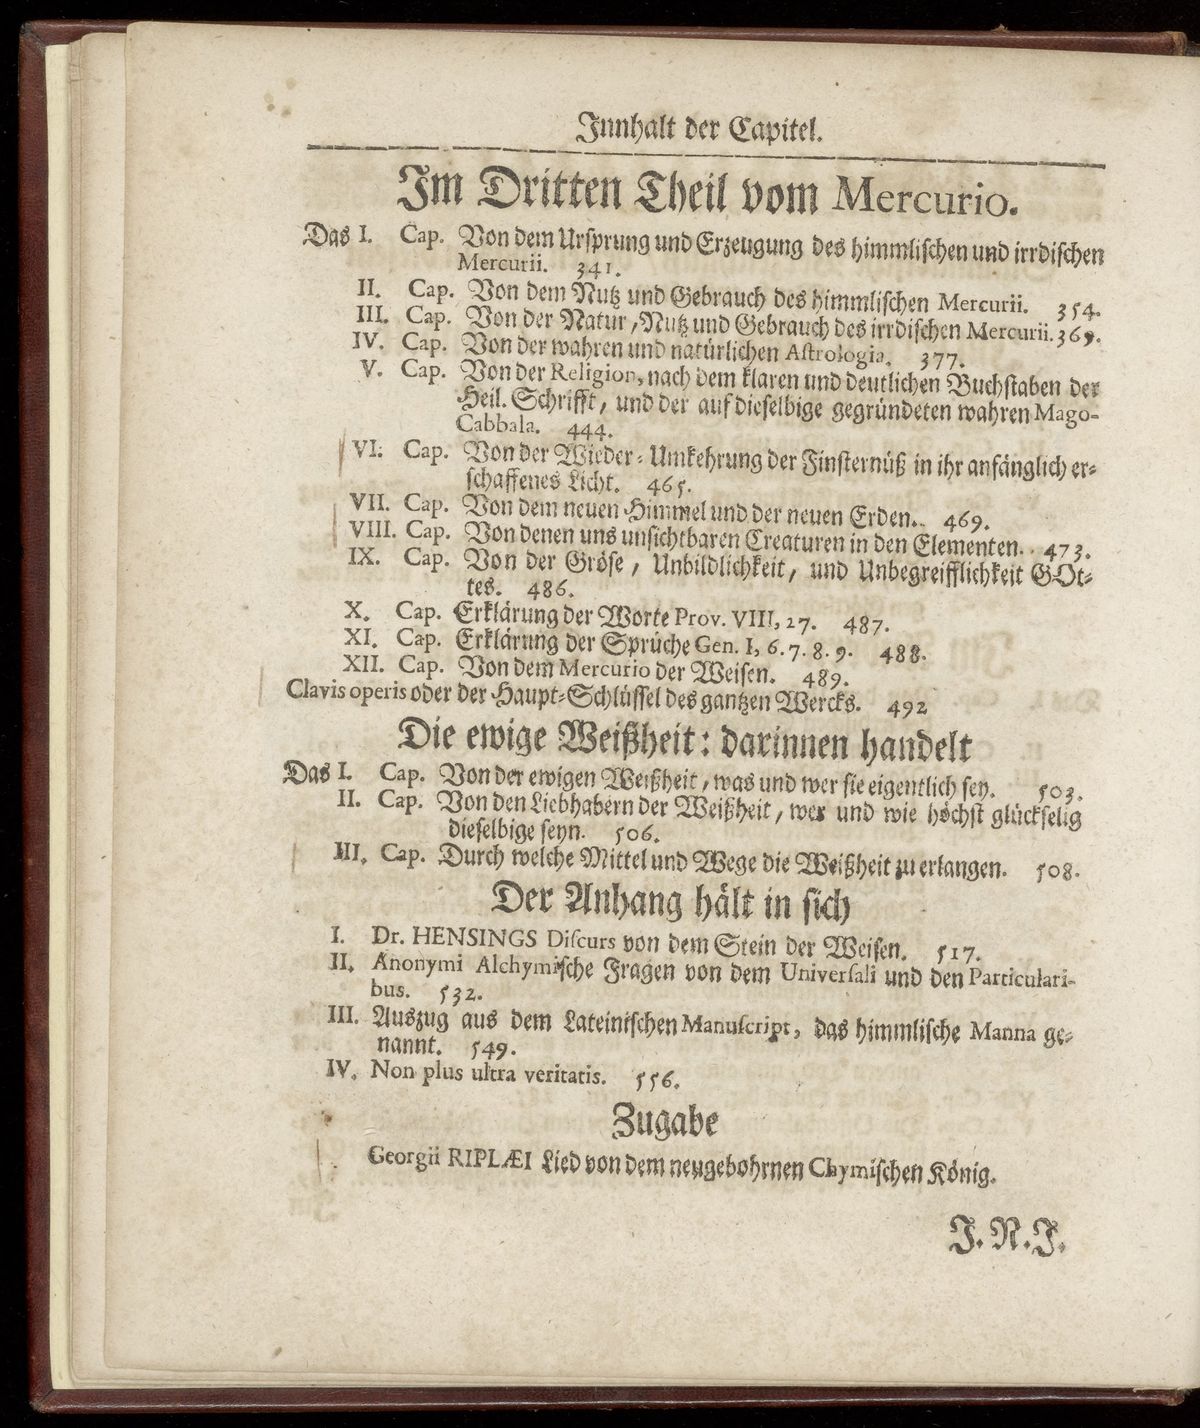 Innhalt der Capitel.
Im Dritten Theil vom Mercurio.
Das I. Cap. Von dem Ursprung und Erzeugung des himmlischen und irrdischen
Mercurii. 341.
II. Cap. Von dem Nutz und Gebrauch des himmlischen Mercurii. 354.
III. Cap. Von der Natur, Nutz und Gebrauch des irrdischen Mercurii. 369.
IV. Cap. Von der wahren und natürlichen Astrologia. 377.
V. Cap. Von der Religion, nach dem klaren und deutlichen Buchstaben der
Heil. Schrifft, und der auf dieselbige gegründeten wahren Mago-
Cabbala. 444.
VI. Cap. Von der Wieder-Umkehrung der Finsternüß in ihr anfänglich er-
schaffenes Licht. 465.
VII. Cap. Von dem neuen Himmel und der neuen Erden. 469.
VIII. Cap. Von denen uns unsichtbaren Creaturen in den Elementen. 473.
IX. Cap. Von der Gröse, Unbildlichkeit, und Unbegreifflichkeit GOt-
tes. 486.
X. Cap. Erklärung der Worte Prov. VIII, 27. 487.
XI. Cap. Erklärung der Sprüche Gen. I, 6. 7. 8. 9. 488.
XII. Cap. Von dem Mercurio der Weisen. 489.
Clavis operis oder der Haupt-Schlüssel des gantzen Wercks. 492
Die ewige Weißheit: darinnen handelt
Das I. Cap. Von der ewigen Weißheit, was und wer sie eigentlich sey. 503.
II. Cap. Von den Liebhabern der Weißheit, wer und wie höchst glückselig
dieselbige seyn. 506.
III. Cap. Durch welche Mittel und Wege die Weißheit zu erlangen. 508.
Der Anhang hält in sich
I. Dr. HENSINGS Discurs von dem Stein der Weisen. 517.
II. Anonymi Alchymische Fragen von dem Universali und den Particulari-
bus. 532.
III. Auszug aus dem Lateinischen Manuscript, das himmlische Manna ge-
nannt. 549.
IV. Non plus ultra veritatis. 556.
Zugabe
Georgii RIPLÆI Lied von dem neugebohrnen Chymischen König.
J. N. J.